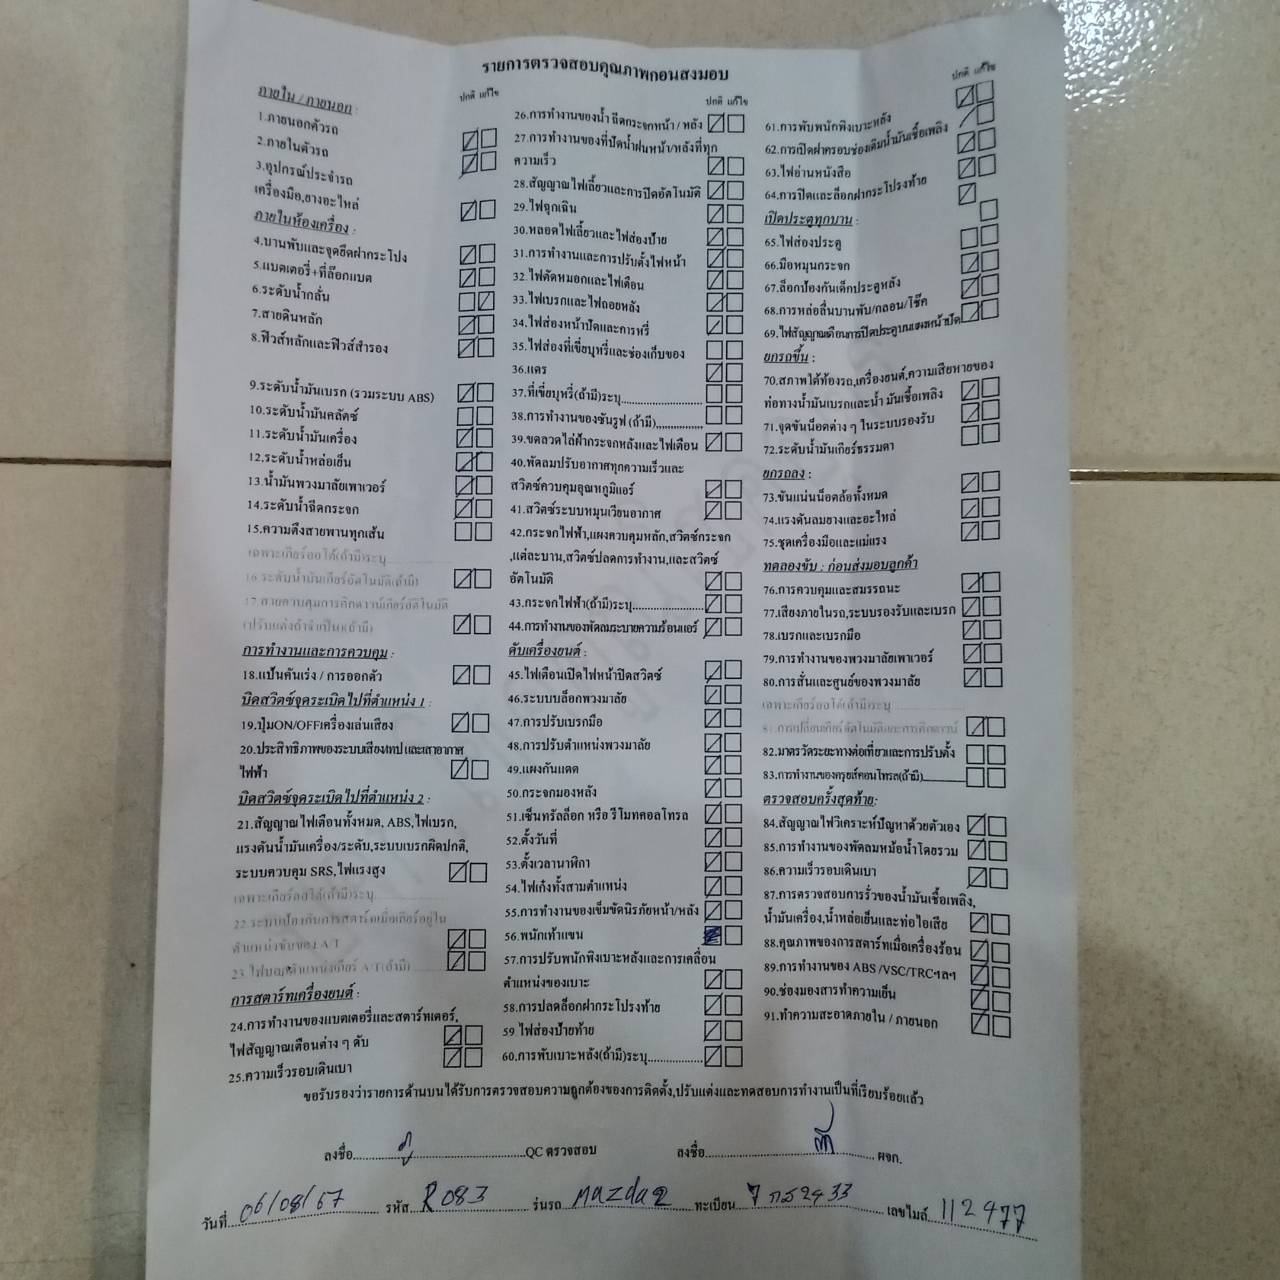 รายการตรวจสอบคุณภาพก่อนส่งมอบ
ภายใน / ภายนอก :
ปกติ แก้ไข
1.ภายนอกตัวรถ
2.ภายในตัวรถ
3.อุปกรณ์ประจำรถ
เครื่องมือ,ยางอะไหล่
ภายในห้องเครื่อง :
4.บานพับและจุดยึดฝากระโปง
5.แบตเตอรี่+ที่ล๊อกแบต
6.ระดับน้ำกลั่น
7.สายดินหลัก
8.ฟิวส์หลักและฟิวส์สำรอง
9.ระดับน้ำมันเบรก (รวมระบบ ABS)
10.ระดับน้ำมันคลัตช์
11.ระดับน้ำมันเครื่อง
12.ระดับน้ำหล่อเย็น
13.น้ำมันพวงมาลัยเพาเวอร์
14.ระดับน้ำฉีดกระจก
15.ความตึงสายพานทุกเส้น
เฉพาะเกียร์ออโต้(ถ้ามี)ระบุ
16.ระดับน้ำมันเกียร์อัตโนมัติ(ถ้ามี)
17.สายควบคุมการคิกดาวน์เกียร์อัตโนมัติ
(ปรับแต่งถ้าจำเป็น)(ถ้ามี)
การทำงานและการควบคุม :
18.แป้นคันเร่ง / การออกตัว
บิดสวิตซ์จุดระเบิดไปที่ตำแหน่ง 1 :
19.ปุ่มON/OFFเครื่องเล่นเสียง
20.ประสิทธิภาพของระบบเสียง/เทป และเสาอากาศ
ไฟฟ้า
บิดสวิตซ์จุดระเบิดไปที่ตำแหน่ง 2 :
21.สัญญาณไฟเตือนทั้งหมด, ABS,ไฟเบรก,
แรงดันน้ำมันเครื่อง/ระดับ,ระบบเบรกผิดปกติ,
ระบบควบคุม SRS,ไฟแรงสูง
เฉพาะเกียร์ออโต้(ถ้ามี)ระบุ
22.ระบบป้องกันการสตาร์ทเมื่อเกียร์อยู่ใน
ตำแหน่งขับของ A/T
23.ไฟบอกตำแหน่งเกียร์ A/T(ถ้ามี)
การสตาร์ทเครื่องยนต์ :
24.การทำงานของแบตเตอรี่และสตาร์ทเตอร์,
ไฟสัญญาณเตือนต่าง ๆ ดับ
25.ความเร็วรอบเดินเบา
ปกติ แก้ไข
26.การทำงานของน้ำ ฉีดกระจกหน้า / หลัง
27.การทำงานของที่ปัดน้ำฝนหน้า/หลังที่ทุก
ความเร็ว
28.สัญญาณไฟเลี้ยวและการปิดอัตโนมัติ
29.ไฟฉุกเฉิน
30.หลอดไฟเลี้ยวและไฟส่องป้าย
31.การทำงานและการปรับตั้งไฟหน้า
32.ไฟตัดหมอกและไฟเตือน
33.ไฟเบรกและไฟถอยหลัง
34.ไฟส่องหน้าปัดและการหรี่
35.ไฟส่องที่เขี่ยบุหรี่และช่องเก็บของ
36.แตร
37.ที่เขี่ยบุหรี่(ถ้ามี)ระบุ
38.การทำงานของซันรูฟ (ถ้ามี)
39.ขดลวดไล่ฝ้ากระจกหลังและไฟเตือน
40.พัดลมปรับอากาศทุกความเร็วและ
สวิตช์ควบคุมอุณหภูมิแอร์
41.สวิตซ์ระบบหมุนเวียนอากาศ
42.กระจกไฟฟ้า,แผงควบคุมหลัก,สวิตช์กระจก
,แต่ละบาน,สวิตช์ปลดการทำงาน,และสวิตช์
อัตโนมัติ
43.กระจกไฟฟ้า(ถ้ามี)ระบุ
44.การทำงานของพัดลมระบายความร้อนแอร์
ดับเครื่องยนต์ :
45.ไฟเตือนเปิดไฟหน้าปิดสวิตซ์
46.ระบบบล็อกพวงมาลัย
47.การปรับเบรกมือ
48.การปรับตำแหน่งพวงมาลัย
49.แผงกันแดด
50.กระจกมองหลัง
51.เซ็นทรัลล็อก หรือ รีโมทคอลโทรล
52.ตั้งวันที่
53.ตั้งเวลานาฬิกา
54.ไฟเก๋งทั้งสามตำแหน่ง
55.การทำงานของเข็มขัดนิรภัยหน้า/หลัง
56.พนักเท้าแขน
57.การปรับพนักพิงเบาะหลังและการเคลื่อน
ตำแหน่งของเบาะ
58.การปลดล็อกฝากระโปรงท้าย
59 ไฟส่องป้ายท้าย
60.การพับเบาะหลัง(ถ้ามี)ระบุ
ปกติ แก้ไข
61.การพับพนักพิงเบาะหลัง
62.การเปิดฝาครอบช่องเติมน้ำมันเชื้อเพลิง
63.ไฟอ่านหนังสือ
64.การปิดและล็อกฝากระโปรงท้าย
เปิดประตูทุกบาน :
65.ไฟส่องประตู
66.มือหมุนกระจก
67.ล็อกป้องกันเด็กประตูหลัง
68.การหล่อลื่นบานพับ/กลอน/โช๊ค
69.ไฟสัญญาณเตือนการปิดประตูบนแผงหน้าปัด
ยกรถขึ้น :
70.สภาพใต้ท้องรถ,เครื่องยนต์,ความเสียหายของ
ท่อทางน้ำมันเบรกและน้ำ มันเชื้อเพลิง
71.จุดขันน็อตต่าง ๆ ในระบบรองรับ
72.ระดับน้ำมันเกียร์ธรรมดา
ยกรถลง :
73.ขันแน่นน็อตล้อทั้งหมด
74.แรงดันลมยางและอะไหล่
75.ชุดเครื่องมือและแม่แรง
ทดลองขับ : ก่อนส่งมอบลูกค้า
76.การควบคุมและสมรรถนะ
77.เสียงภายในรถ,ระบบรองรับและเบรก
78.เบรกและเบรกมือ
79.การทำงานของพวงมาลัยเพาเวอร์
80.การสั่นและศูนย์ของพวงมาลัย
เฉพาะเกียร์ออโต้(ถ้ามี)ระบุ
81.การเปลี่ยนเกียร์อัตโนมัติและการคิกดาวน์
82.มาตรวัดระยะทางต่อเที่ยวและการปรับตั้ง
83.การทำงานของครุยส์คอนโทรล(ถ้ามี)
ตรวจสอบครั้งสุดท้าย:
84.สัญญาณไฟวิเคราะห์ปัญหาด้วยตัวเอง
85.การทำงานของพัดลมหม้อน้ำโดยรวม
86.ความเร็วรอบเดินเบา
87.การตรวจสอบการรั่วของน้ำมันเชื้อเพลิง,
น้ำมันเครื่อง,น้ำหล่อเย็นและท่อไอเสีย
88.คุณภาพของการสตาร์ทเมื่อเครื่องร้อน
89.การทำงานของ ABS /VSC/TRCฯลฯ
90.ช่องมองสารทำความเย็น
91.ทำความสะอาดภายใน / ภายนอก
ขอรับรองว่ารายการด้านบนได้รับการตรวจสอบความถูกต้องของการติดตั้ง,ปรับแต่งและทดสอบการทำงานเป็นที่เรียบร้อยแล้ว
ลงชื่อ QC ตรวจสอบ ลงชื่อ ผจก.
วันที่ 06/08/67 รหัส R083 รุ่นรถ Mazda2 ทะเบียน 7กธ2433 เลขไมล์ 112477